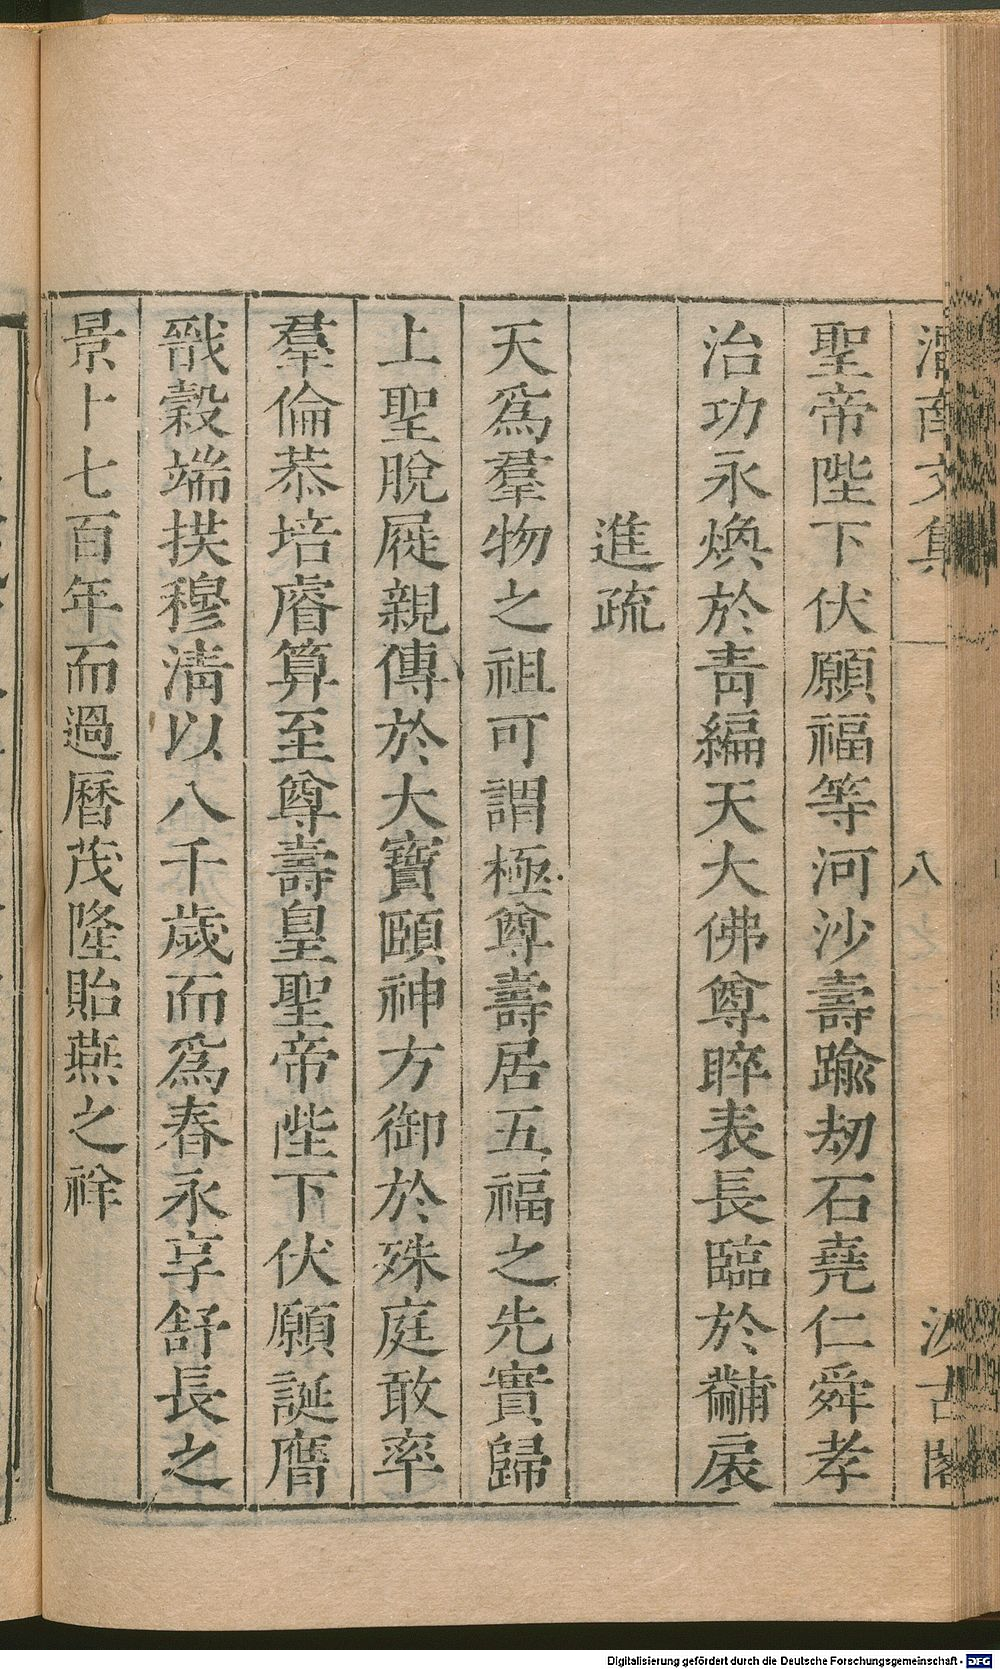 渭南文集
八
汲古閣
聖帝陛下伏願福等河沙壽踰劫石堯仁舜孝
治功永煥於靑編天大佛尊睟表長臨於黼扆
進疏
天爲羣物之祖可謂極尊壽居五福之先實歸
上聖脫屣親傳於大寶頤神方御於殊庭敢率
羣倫恭培睿算至尊壽皇聖帝陛下伏願誕膺
戩穀端拱穆淸以八千歲而爲春永享舒長之
景卜七百年而過曆茂隆貽燕之祥
Digitalisierung gefördert durch die Deutsche Forschungsgemeinschaft - DFG